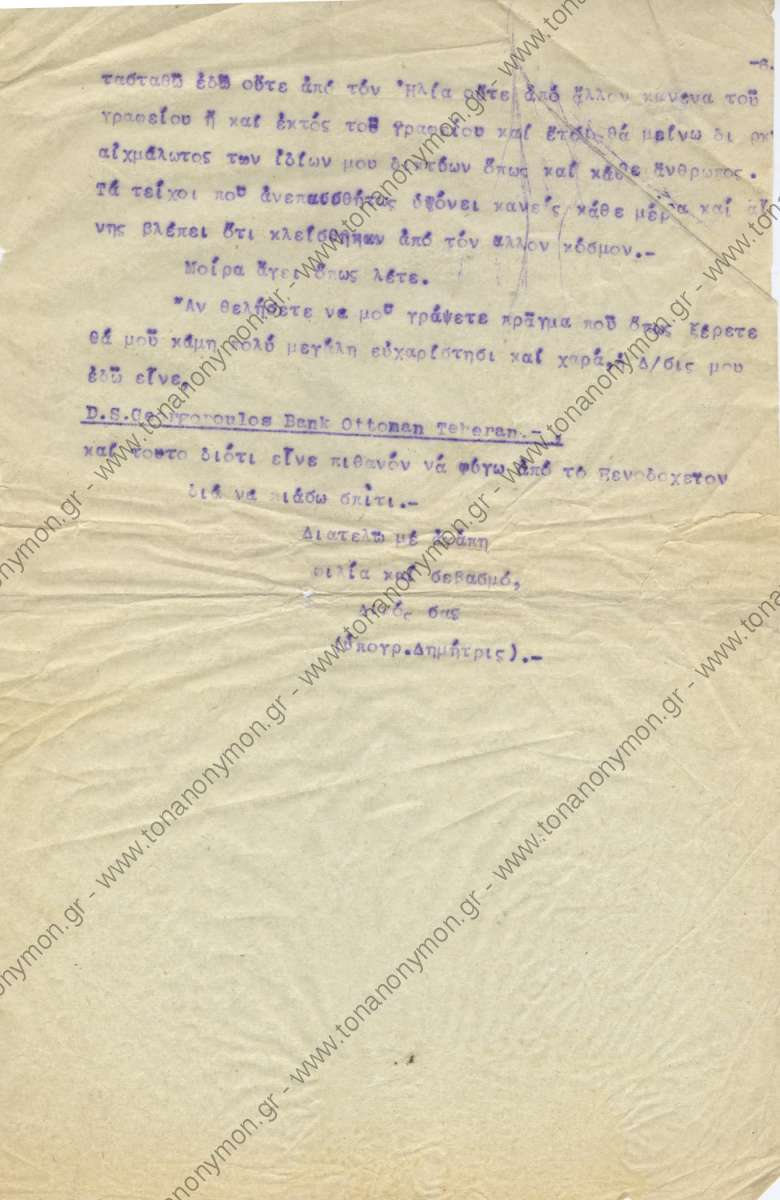 -6.
τασταθῶ ἐδῶ οὔτε ἀπό τόν Ἠλία οὔτε ἀπό ἄλλον κανένα τοῦ
γραφείου ἤ καί ἐκτός τοῦ γραφείου καί ἔτσι θά μείνω
αἰχμάλωτος των ἰδίων μου ὅπως καί κάθε ἄνθρωπος.
Τά τείχοι ποῦ ὑψόνει κανείς κάθε μέρα καί
νης βλέπει ὅτι κλείσθηκαν ἀπό τόν αλλον κόσμον.-
Μοίρα ἄγει ὅπως λέτε.
Ἄν θελήσετε να μοῦ γράψετε πρᾶγμα ποῦ ὅπως ξέρετε
θά μοῦ κάμη πολύ μεγάλη εὐχαρίστησι καί χαρά, ἡ Δ/σις μου
ἐδῶ εἶνε,
D.S.Georgopoulos Bank Ottoman Teheran.-
καί τοῦτο διότι εἶνε πιθανόν νά φύγω ἀπό τό Ξενοδοχεῖον
διά να πιάσω σπίτι.-
Διατελῶ μέ ἀγάπη
φιλία καί σεβασμό,
Δικός σας
(ὑπογρ.Δημήτρις).-
www.tonanonymon.gr - www.tonanonymon.gr - www.tonanonymon.gr